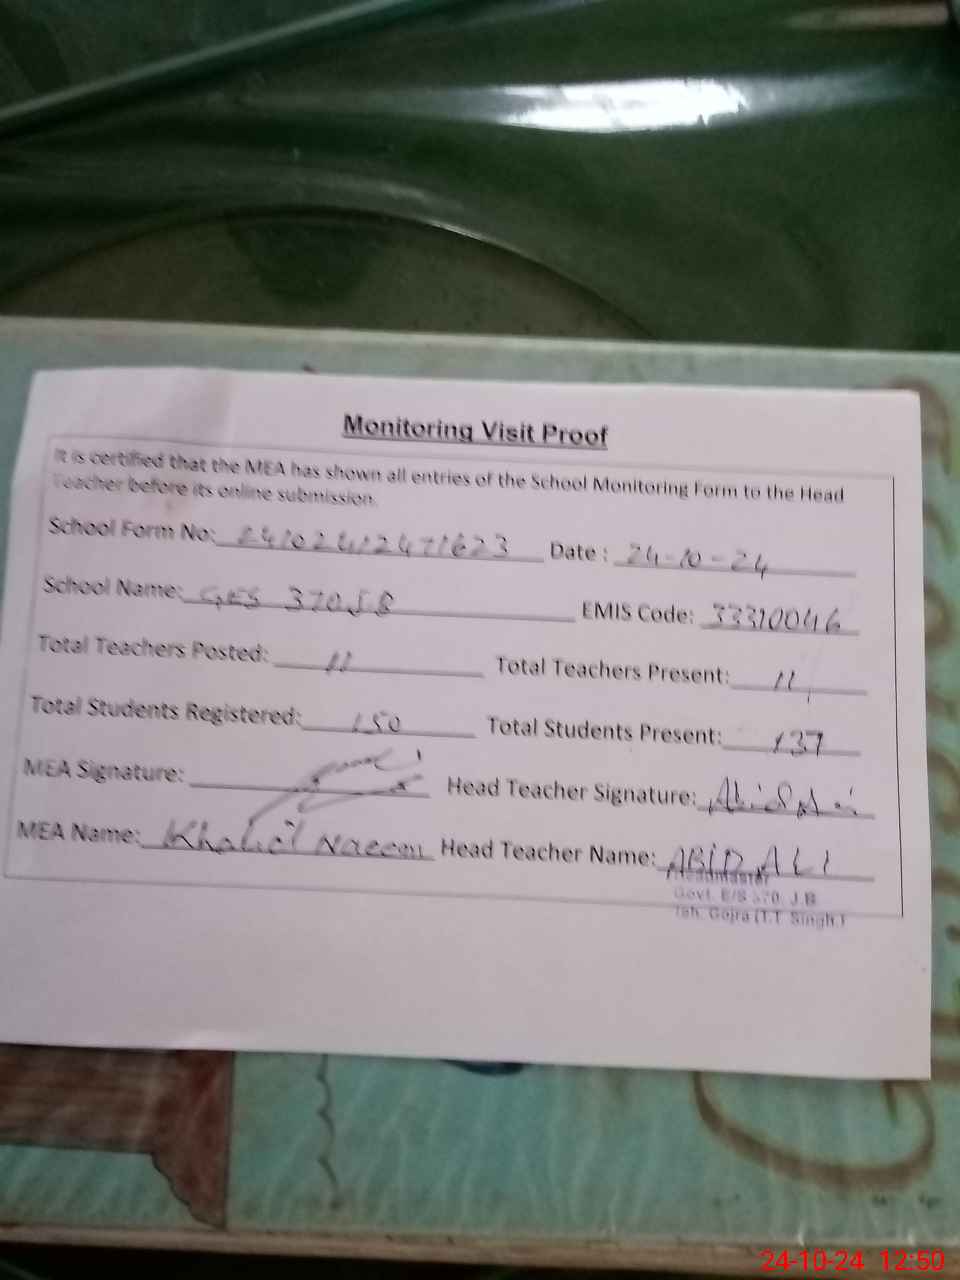 Monitoring Visit Proof
It is certified that the MEA has shown all entries of the School Monitoring Form to the Head
Teacher before its online submission.
School Form No: Date : 24-10-24
School Name: GES 370JB EMIS Code: 33310046
Total Teachers Posted: 11 Total Teachers Present: 11
Total Students Registered: 150 Total Students Present: 137
MEA Signature: Head Teacher Signature:
MEA Name: Khalid Naeem Head Teacher Name: ABID ALI
Headmaster
Govt. E/S 370 J.B
Teh. Gojra (T.T. Singh.)
24-10-24 12:50